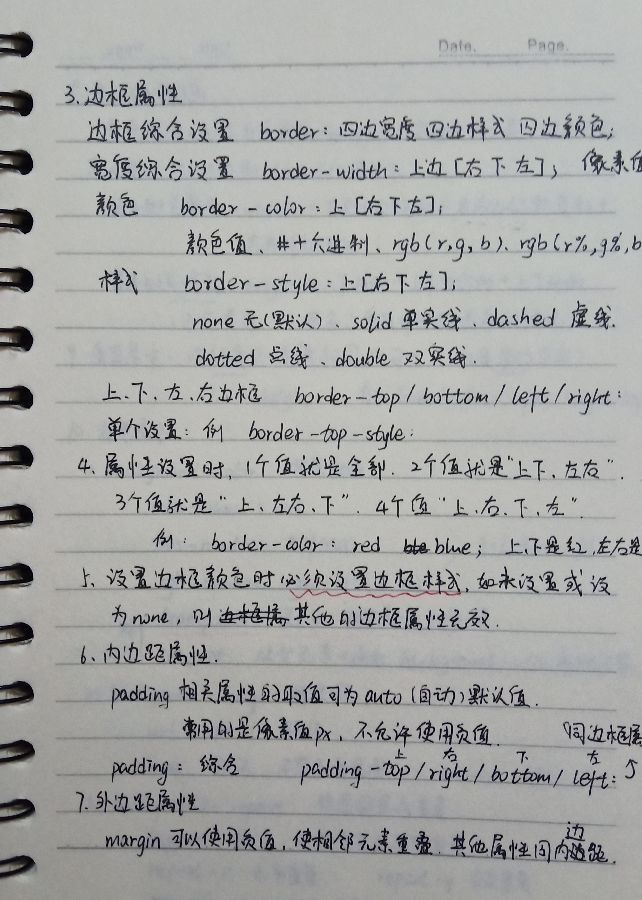 Date. Page.
3.边框属性
边框综合设置 border: 四边宽度 四边样式 四边颜色;
宽度综合设置 border-width: 上边[右 下 左]; 像素值
颜色 border-color: 上[右下左];
颜色值、#十六进制、rgb(r,g,b)、rgb(r%,g%,b
样式 border-style: 上[右下左];
none 无(默认)、solid 单实线、dashed 虚线.
dotted 点线、double 双实线.
上、下、左、右边框 border-top/bottom/left/right:
单个设置: 例 border-top-style:
4.属性设置时,1个值就是全部.2个值就是"上下、左右".
3个值就是"上、左右、下".4个值"上、右、下、左".
例: border-color: red blue; 上、下是红,左右是
5、设置边框颜色时必须设置边框样式,如未设置或设
为none,则其他的边框属性无效.
6、内边距属性.
padding 相关属性的取值可为auto(自动)默认值.
常用的是像素值px,不允许使用负值. 同边框属
上 右 下 左
padding: 综合 padding-top/right/bottom/left:
7.外边距属性
margin 可以使用负值,使相邻元素重叠.其他属性同内边距.